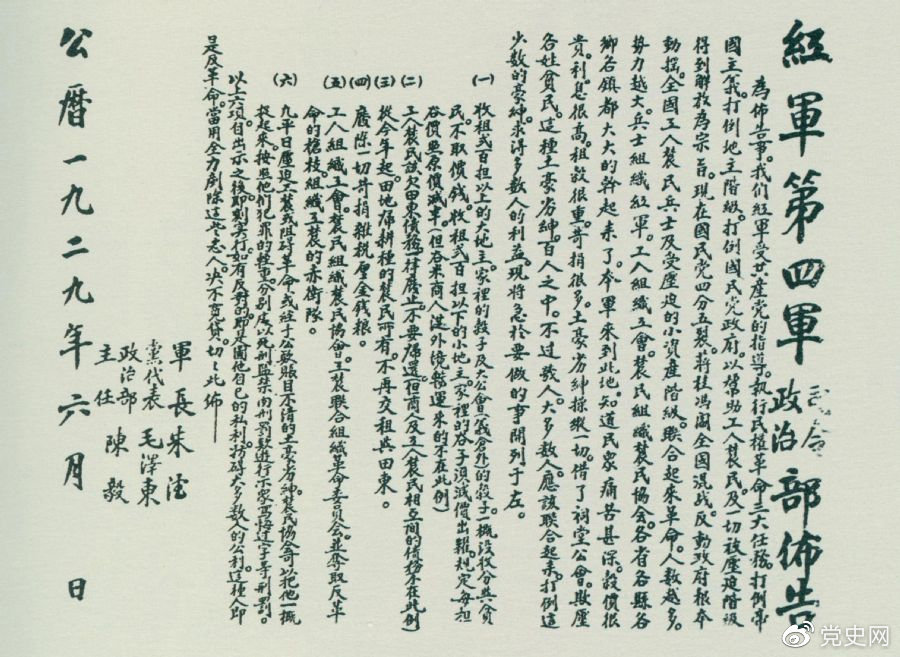 紅軍第四軍司令政治部佈告
為佈告事。我們紅軍受共產党的指導。执行民权革命三大任務。打倒帝
國主义。打倒地主階級。打倒國民党政府。以幫助工人農民及一切被壓迫階級
得到解放為宗旨。現在國民党四分五裂。蔣桂馮閻全國混战。反動政府根本
動搖。全國工人農民兵士及受壓迫的小資產階級。联合起來革命。人数越多。
势力越大。兵士組織紅軍。工人組織工會。農民組織農民協會。各省各縣各
鄉各鎮都大大的幹起來了。本軍來到此地。知道民众痛苦甚深。穀價很
貴。利息很高。租穀很重。苛捐很多。土豪劣紳操縱一切。借了祠堂公會。欺壓
各姓貧民。這種土豪劣紳。百人之中。不过数人。大多数人應該联合起來。打倒這
少数的豪紳。求得多数人的利益。現將急於要做的事開列于左。
(一) 收租弍百担以上的大地主。家裡的穀子及大公會(義倉外)的穀子。一概没收分與貧
民。不取價錢。收租弍百担以下的小地主。家裡的谷子。須減價出糶。規定每担
谷價照原價減半。(但谷米商人從外境輸運來的不在此例)
(二) 工人農民該欠田東債務。一律廢止。不要歸還。(但商人及工人農民相互間的債務不在此例)
(三) 從今年起。田地歸耕種的農民所有。不再交租與田東。
(四) 廢除一切苛捐雜税厘金錢粮。
(五) 工人組織工會。農民組織農民協會。工農联合組織革命委員会。並奪取反革
命的槍枝組織工農的赤衛隊。
(六) 凡平日壓迫工農或阻碍革命。或經手公款賬目不清的土豪劣紳。農民協會可以把他一概
捉起來。按照他们犯罪的輕重。分别處以死刑監禁肉刑罰款遊行示家寫悔过字等刑罰。
以上六項自出示之後。即刻实行。如有反對的。即是圖他自己的私利。妨碍大多数人的公利。這種人即
是反革命。當用全力剷除這些惡人。决不寬貸。切切此佈
軍長 朱德
黨代表 毛澤東
政治部主任 陳毅
公曆一九二九年六月 日
党史网